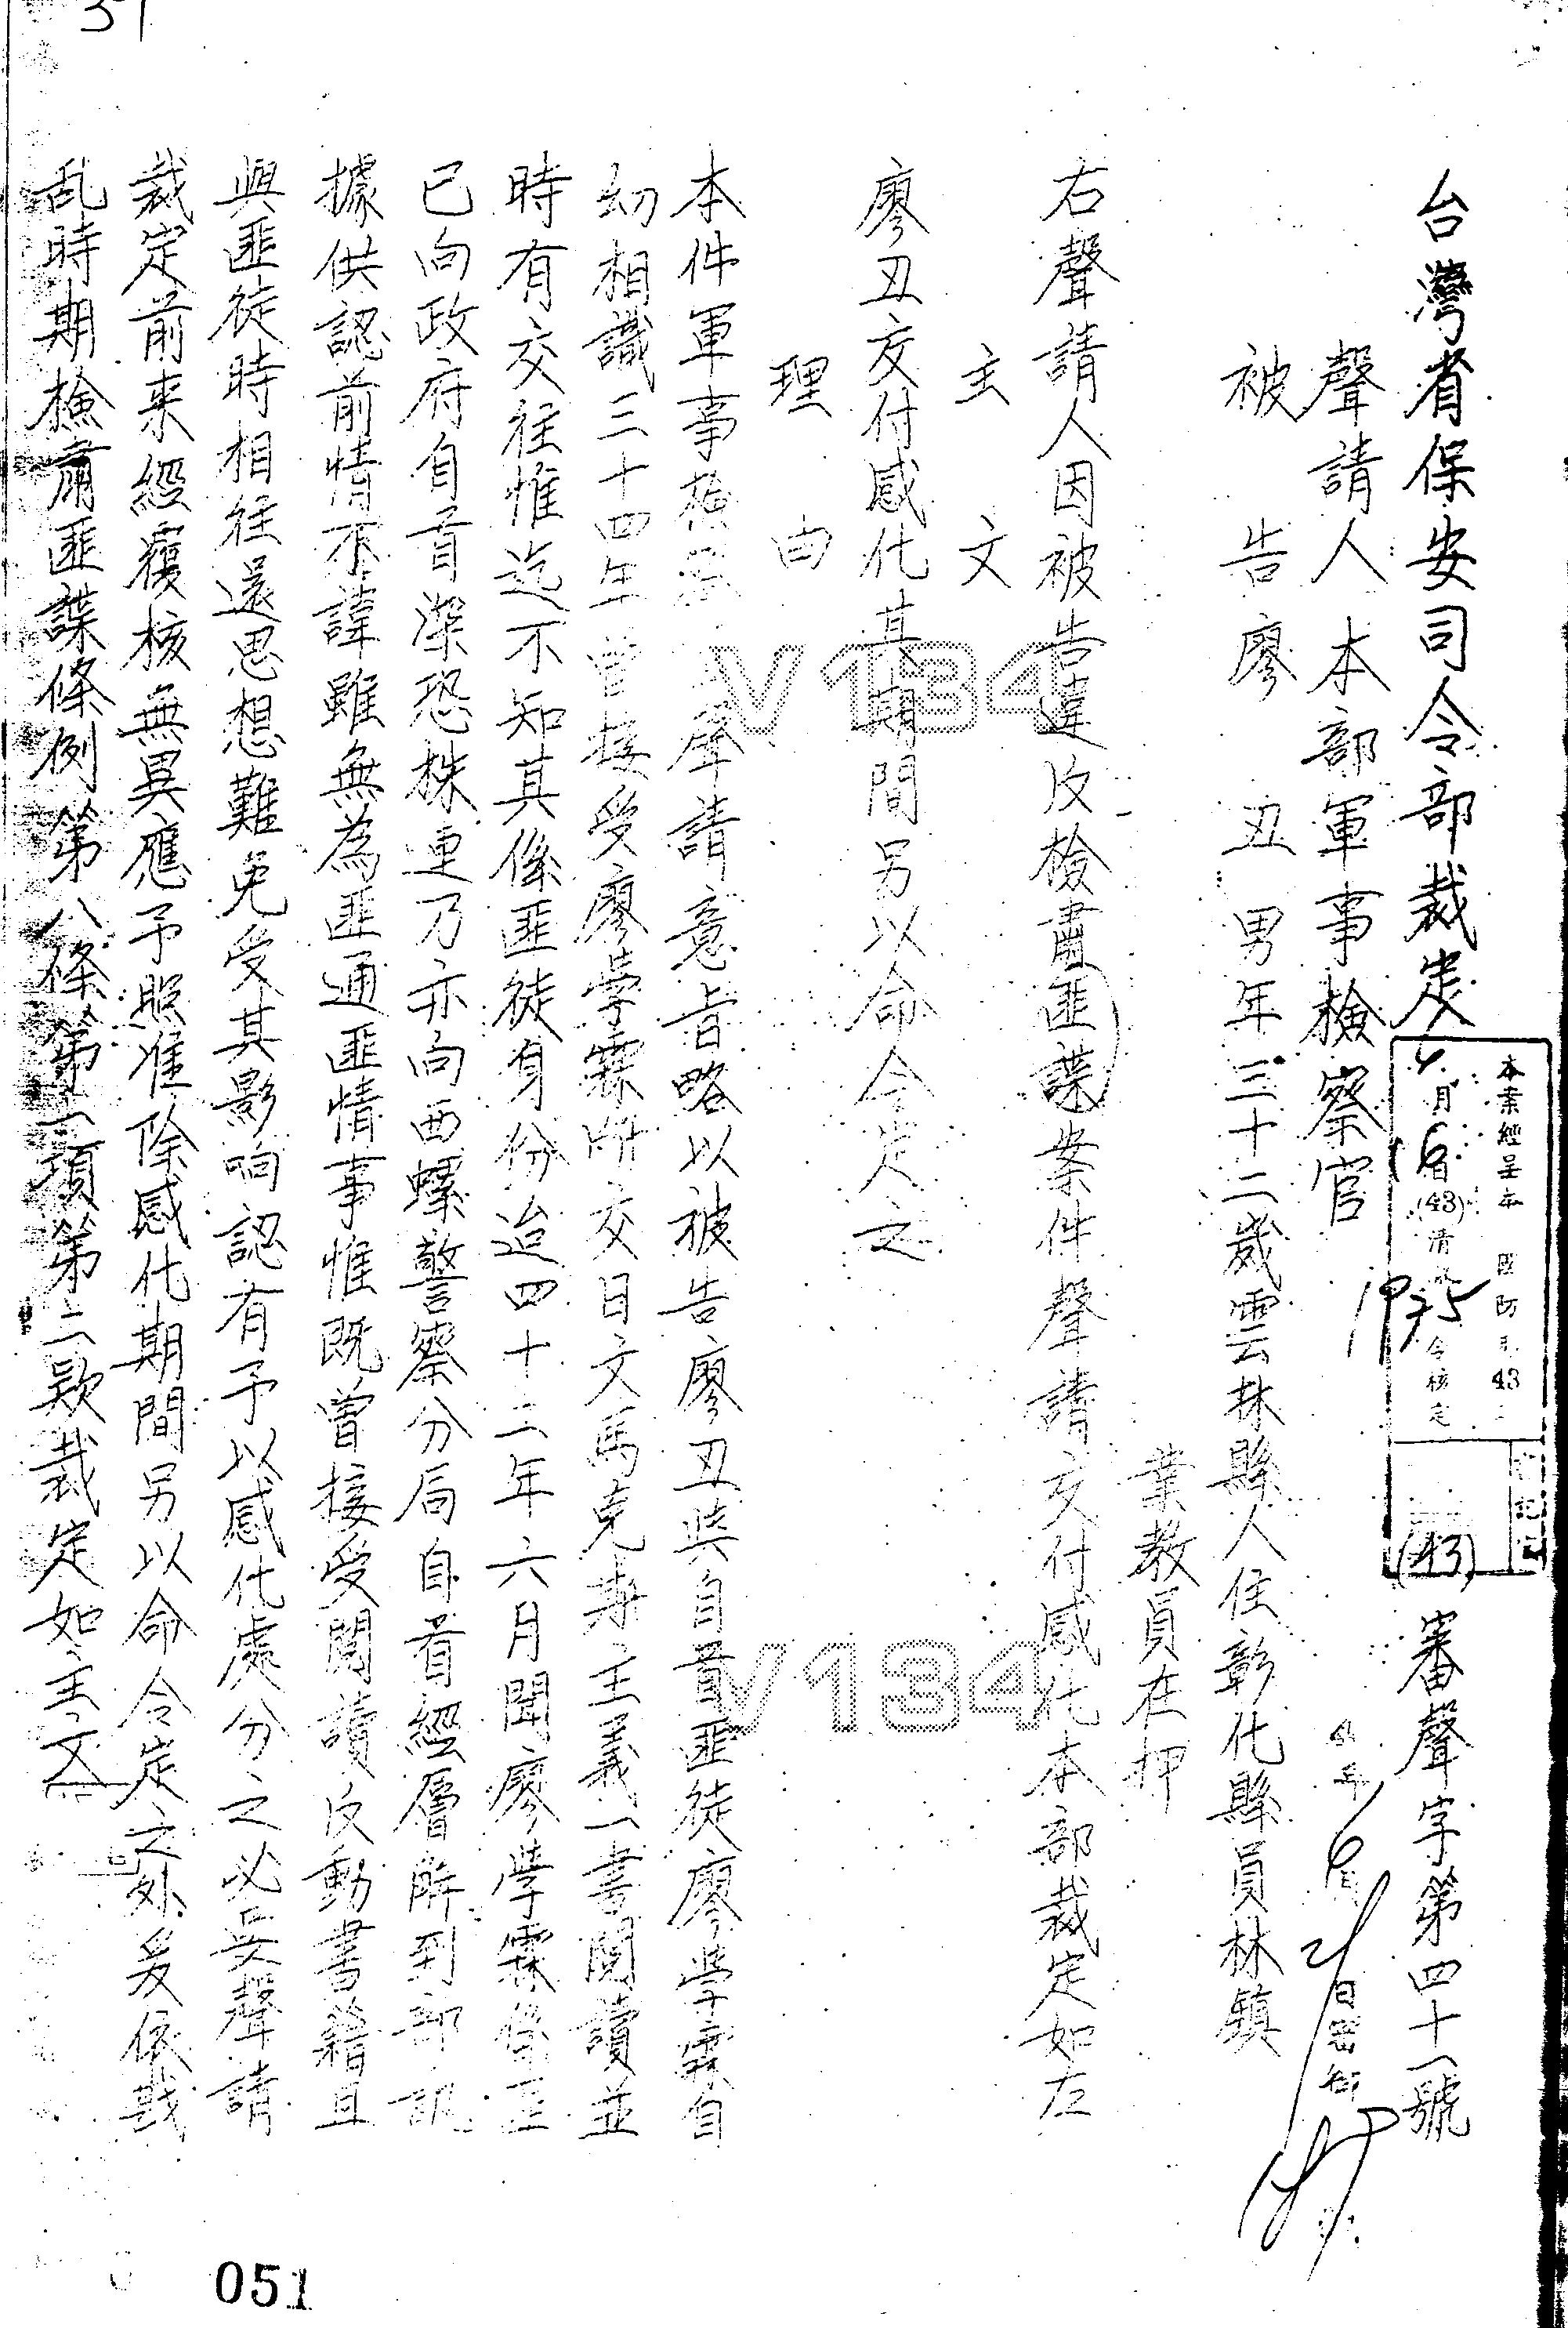 台灣省保安司令部裁定
(43)審聲字第四十一號
聲請人本部軍事檢察官
被告廖丑男年三十二歲雲林縣人住彰化縣員林鎮
業教員在押
右聲請人因被告違反檢肅匪諜案件聲請交付感化本部裁定如左
主文
廖丑交付感化其期間另以命令定之
理由
本件軍事檢察 聲請意旨略以被告廖丑與自首匪徒廖學霖自
幼相識三十四年曾接受廖學霖所交日文馬克斯主義一書閱讀並
時有交往惟迄不知其係匪徒身份迨四十二年六月聞廖學霖係匪
已向政府自首深恐株連乃亦向西螺警察分局自首經層解到部訊
據供認前情不諱雖無為匪通匪情事惟既曾接受閱讀反動書籍且
與匪徒時相往還思想難免受其影响認有予以感化處分之必要聲請
裁定前来經覆核無異應予照准除感化期間另以命令定之外爰依戡
乱時期檢肅匪諜條例第八條第一項第二款裁定如主文
本案經呈奉 國防部43
月16日(43)清 1975令核定
登記
(43)
V134
V134
051